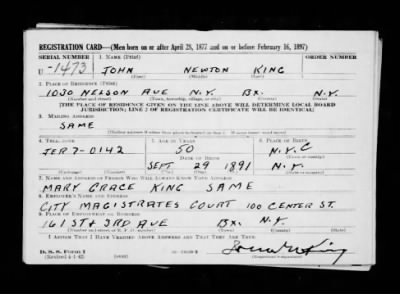 REGISTRATION CARD—(Men born on or after April 28, 1877 and on or before February 16, 1897)
SERIAL NUMBER 1. NAME (Print) ORDER NUMBER
U -1473 JOHN NEWTON KING
(First) (Middle) (Last)
2. PLACE OF RESIDENCE (Print)
1030 NELSON AVE N.Y. BX. N.Y.
(Number and street) (Town, township, village, or city) (County) (State)
[THE PLACE OF RESIDENCE GIVEN ON THE LINE ABOVE WILL DETERMINE LOCAL BOARD
JURISDICTION; LINE 2 OF REGISTRATION CERTIFICATE WILL BE IDENTICAL]
3. MAILING ADDRESS
SAME
[Mailing address if other than place indicated on line 2. If same insert word same]
4. TELEPHONE 5. AGE IN YEARS 6. PLACE OF BIRTH
JER 7-0142 50 N.Y.C
DATE OF BIRTH
SEPT 29 1891 N.Y.
7. NAME AND ADDRESS OF PERSON WHO WILL ALWAYS KNOW YOUR ADDRESS
MARY GRACE KING SAME
8. EMPLOYER'S NAME AND ADDRESS
CITY MAGISTRATES COURT 100 CENTER ST.
9. PLACE OF EMPLOYMENT OR BUSINESS
161 ST & 3RD AVE BX. N.Y.
(Number and street or R. F. D. number) (Town) (County) (State)
I AFFIRM THAT I HAVE VERIFIED ABOVE ANSWERS AND THAT THEY ARE TRUE.
D. S. S. Form 1
(Revised 4-1-42) (over)